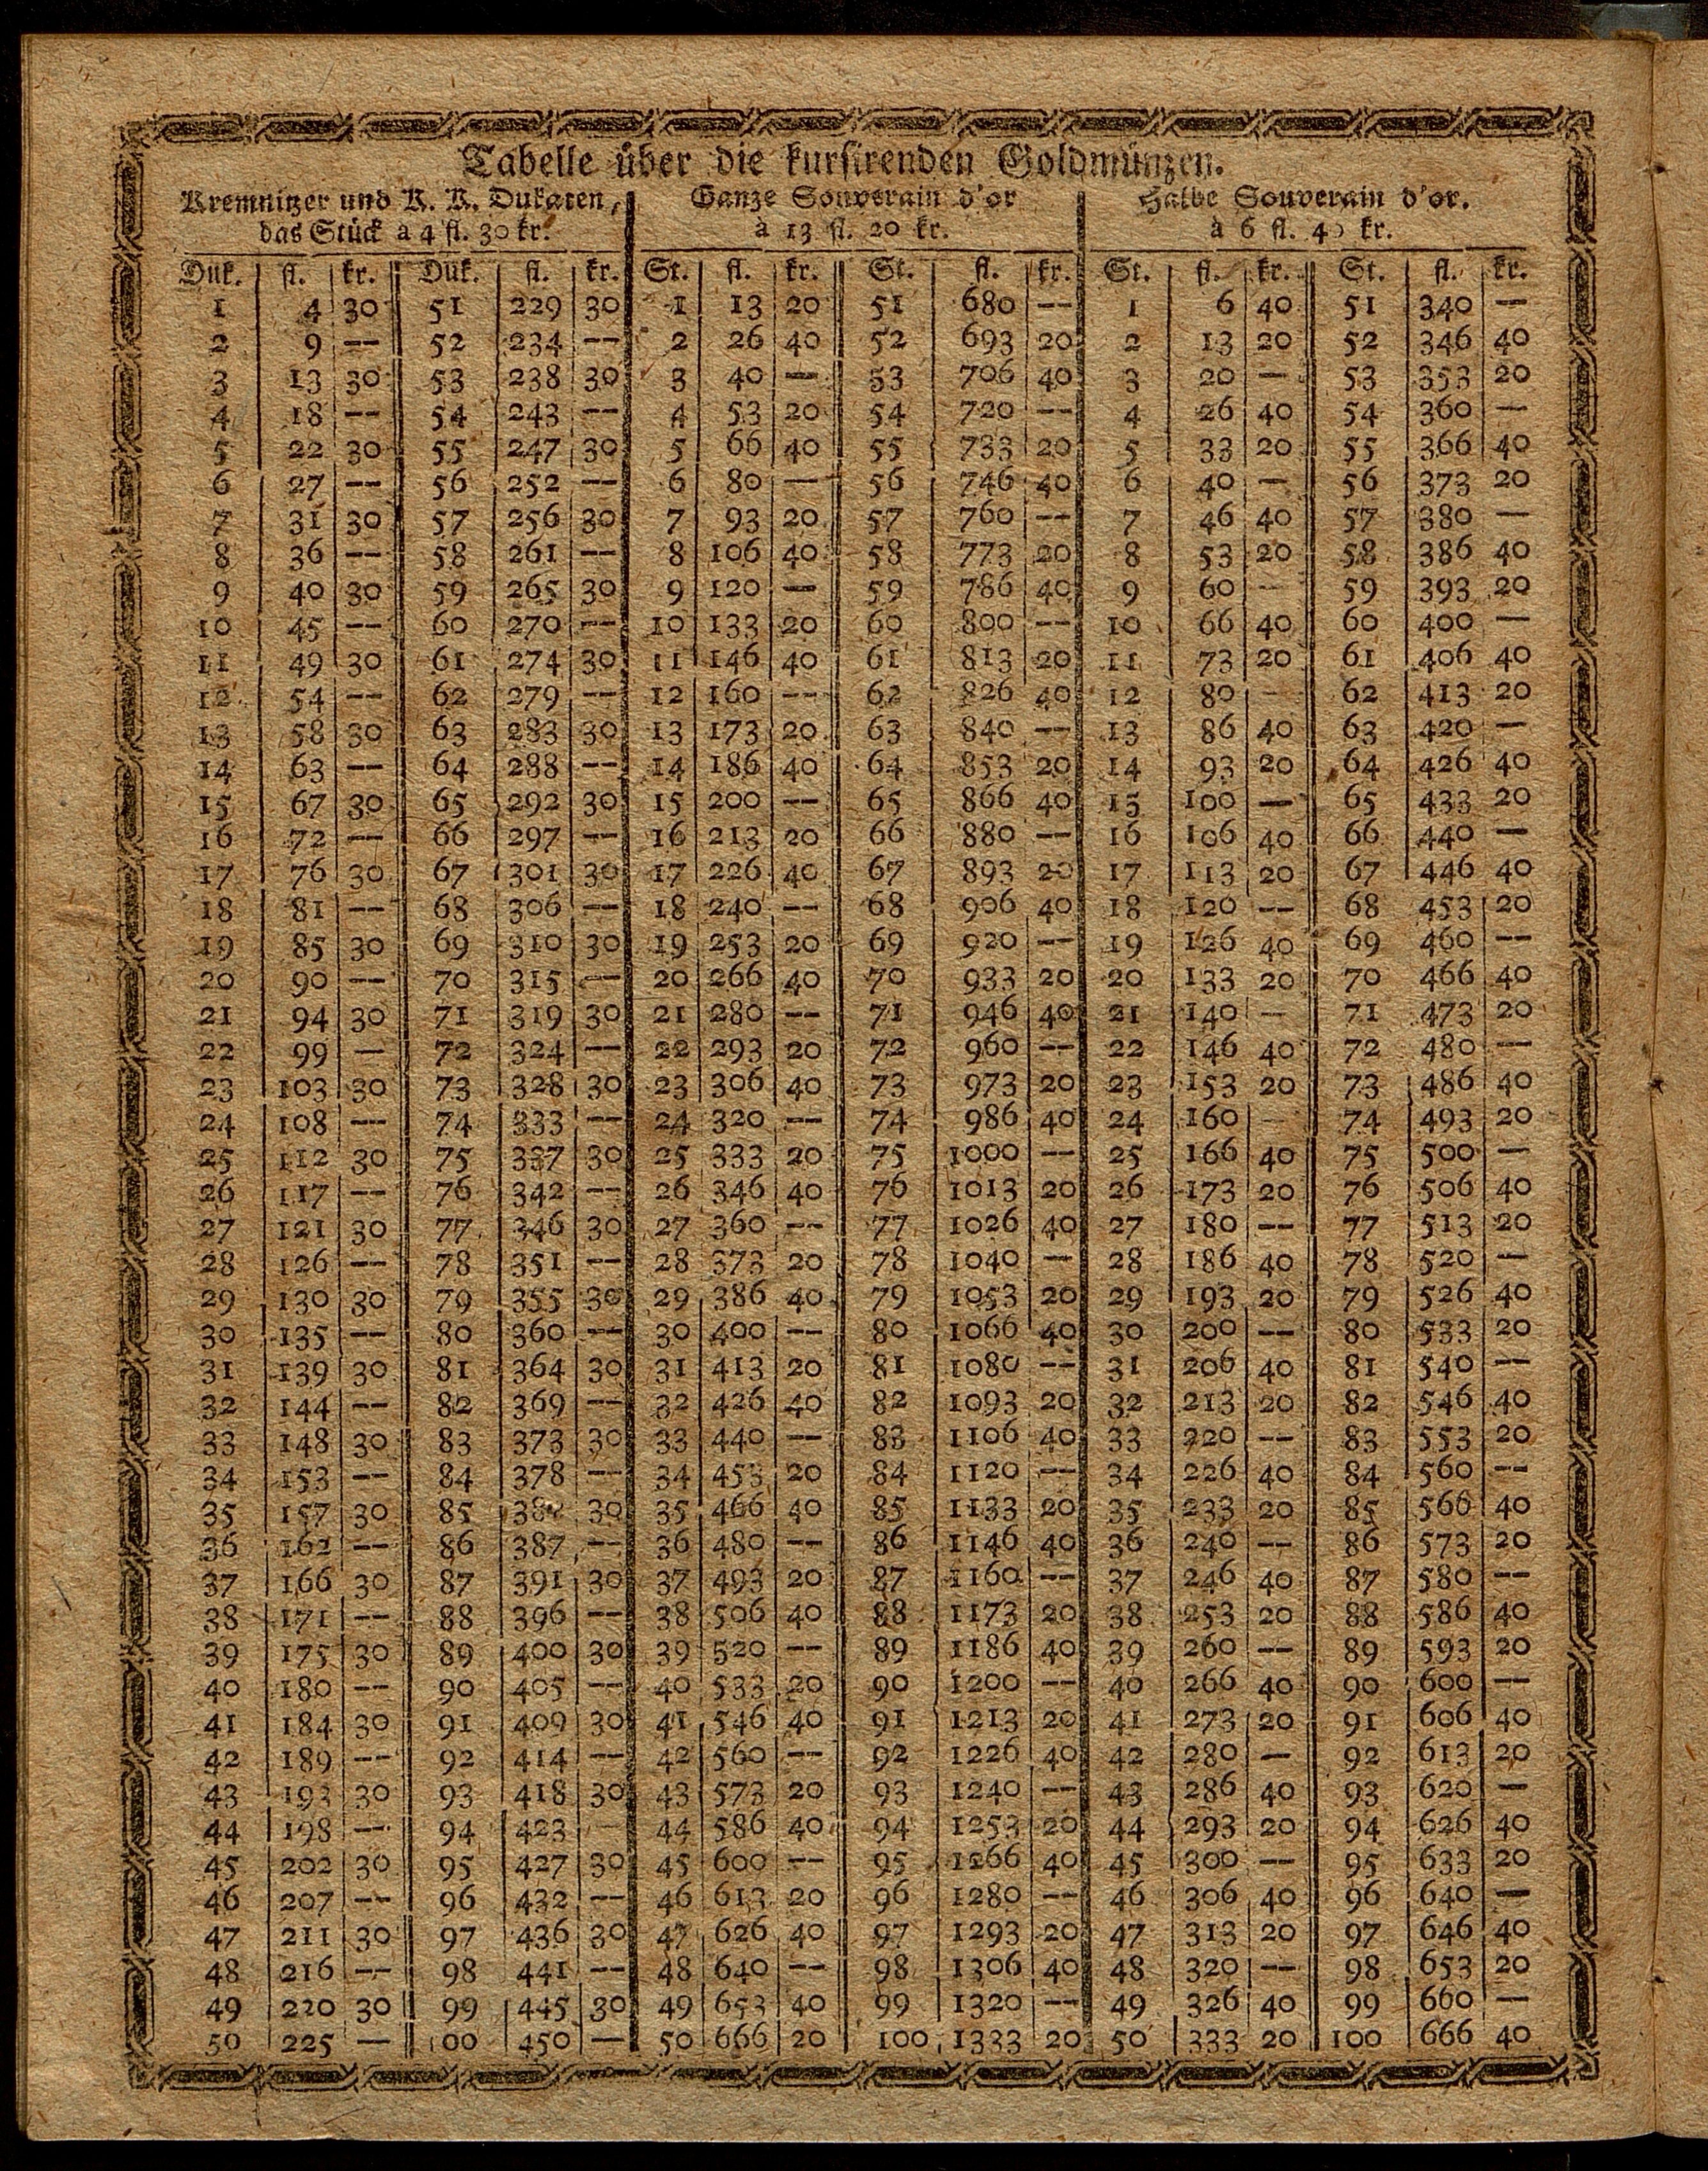 Tabelle über die kursirenden Goldmünzen.
Kremnitzer und K. K. Dukaten, das Stück à 4 fl. 30 kr.
Ganze Souverain d'or à 13 fl. 20 kr.
Halbe Souverain d'or. à 6 fl. 40 kr.
Duk. fl. kr. Duk. fl. kr. St. fl. kr. St. fl. kr. St. fl. kr. St. fl. kr.
1 4 30 51 229 30 1 13 20 51 680 — 1 6 40 51 340 —
2 9 — 52 234 — 2 26 40 52 693 20 2 13 20 52 346 40
3 13 30 53 238 30 3 40 — 53 706 40 3 20 — 53 353 20
4 18 — 54 243 — 4 53 20 54 720 — 4 26 40 54 360 —
5 22 30 55 247 30 5 66 40 55 733 20 5 33 20 55 366 40
6 27 — 56 252 — 6 80 — 56 746 40 6 40 — 56 373 20
7 31 30 57 256 30 7 93 20 57 760 — 7 46 40 57 380 —
8 36 — 58 261 — 8 106 40 58 773 20 8 53 20 58 386 40
9 40 30 59 265 30 9 120 — 59 786 40 9 60 — 59 393 20
10 45 — 60 270 — 10 133 20 60 800 — 10 66 40 60 400 —
11 49 30 61 274 30 11 146 40 61 813 20 11 73 20 61 406 40
12 54 — 62 279 — 12 160 — 62 826 40 12 80 — 62 413 20
13 58 30 63 283 30 13 173 20 63 840 — 13 86 40 63 420 —
14 63 — 64 288 — 14 186 40 64 853 20 14 93 20 64 426 40
15 67 30 65 292 30 15 200 — 65 866 40 15 100 — 65 433 20
16 72 — 66 297 — 16 213 20 66 880 — 16 106 40 66 440 —
17 76 30 67 301 30 17 226 40 67 893 20 17 113 20 67 446 40
18 81 — 68 306 — 18 240 — 68 906 40 18 120 — 68 453 20
19 85 30 69 310 30 19 253 20 69 920 — 19 126 40 69 460 —
20 90 — 70 315 — 20 266 40 70 933 20 20 133 20 70 466 40
21 94 30 71 319 30 21 280 — 71 946 40 21 140 — 71 473 20
22 99 — 72 324 — 22 293 20 72 960 — 22 146 40 72 480 —
23 103 30 73 328 30 23 306 40 73 973 20 23 153 20 73 486 40
24 108 — 74 333 — 24 320 — 74 986 40 24 160 — 74 493 20
25 112 30 75 337 30 25 333 20 75 1000 — 25 166 40 75 500 —
26 117 — 76 342 — 26 346 40 76 1013 20 26 173 20 76 506 40
27 121 30 77 346 30 27 360 — 77 1026 40 27 180 — 77 513 20
28 126 — 78 351 — 28 373 20 78 1040 — 28 186 40 78 520 —
29 130 30 79 355 30 29 386 40 79 1053 20 29 193 20 79 526 40
30 135 — 80 360 — 30 400 — 80 1066 40 30 200 — 80 533 20
31 139 30 81 364 30 31 413 20 81 1080 — 31 206 40 81 540 —
32 144 — 82 369 — 32 426 40 82 1093 20 32 213 20 82 546 40
33 148 30 83 373 30 33 440 — 83 1106 40 33 220 — 83 553 20
34 153 — 84 378 — 34 453 20 84 1120 — 34 226 40 84 560 —
35 157 30 85 30 35 466 40 85 1133 20 35 233 20 85 566 40
36 162 — 86 387 — 36 480 — 86 1146 40 36 240 — 86 573 20
37 166 30 87 391 30 37 493 20 87 1160 — 37 246 40 87 580 —
38 171 — 88 396 — 38 506 40 88 1173 20 38 253 20 88 586 40
39 175 30 89 400 30 39 520 — 89 1186 40 39 260 — 89 593 20
40 180 — 90 405 — 40 533 20 90 1200 — 40 266 40 90 600 —
41 184 30 91 409 30 41 546 40 91 1213 20 41 273 20 91 606 40
42 189 — 92 414 — 42 560 — 92 1226 40 42 280 — 92 613 20
43 193 30 93 418 30 43 573 20 93 1240 — 43 286 40 93 620 —
44 198 — 94 423 — 44 586 40 94 1253 20 44 293 20 94 626 40
45 202 30 95 427 30 45 600 — 95 1266 40 45 300 — 95 633 20
46 207 — 96 432 — 46 613 20 96 1280 — 46 306 40 96 640 —
47 211 30 97 436 30 47 626 40 97 1293 20 47 313 20 97 646 40
48 216 — 98 441 — 48 640 — 98 1306 40 48 320 — 98 653 20
49 220 30 99 445 30 49 653 40 99 1320 — 49 326 40 99 660 —
50 225 — 100 450 — 50 666 20 100 1333 20 50 333 20 100 666 40